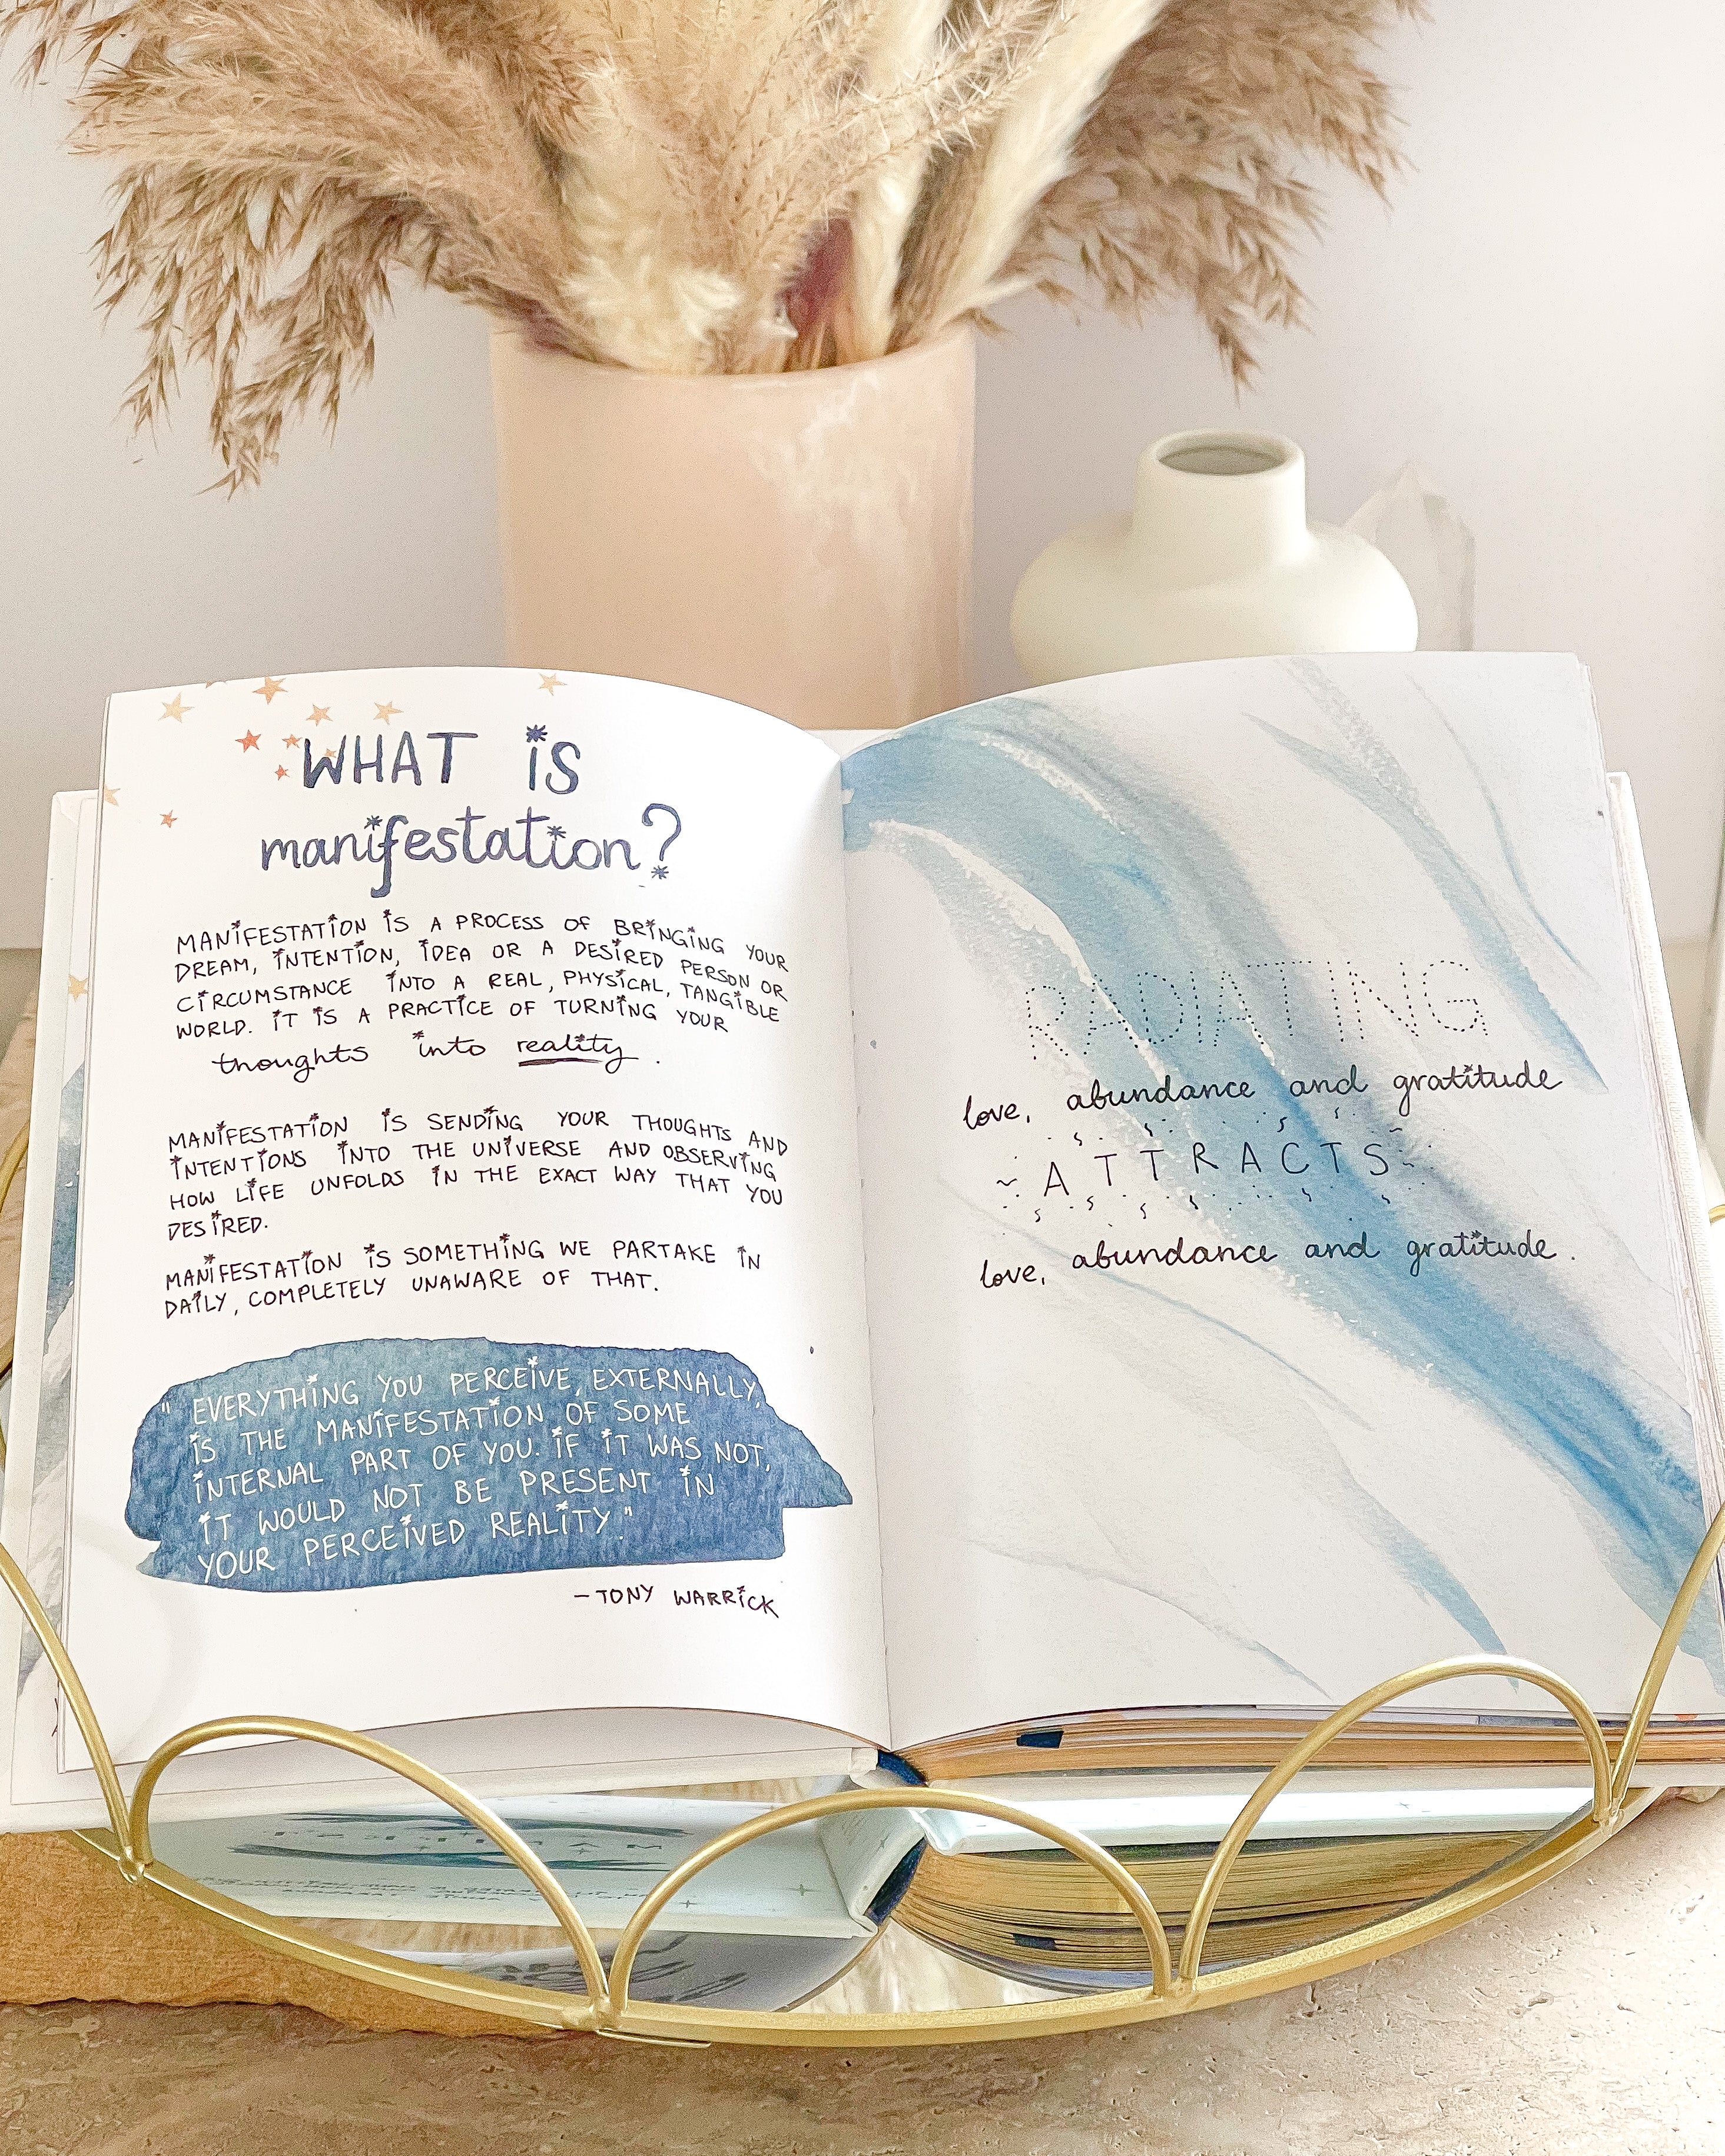 WHAT iS
manifestation?
MANiFESTATiON iS A PROCESS OF BRiNGiNG YOUR
DREAM, iNTENTiON, iDEA OR A DESiRED PERSON OR
CiRCUMSTANCE iNTO A REAL, PHYSiCAL, TANGiBLE
WORLD. iT iS A PRACTiCE OF TURNiNG YOUR
thoughts into reality.
MANiFESTATiON iS SENDiNG YOUR THOUGHTS AND
iNTENTiONS iNTO THE UNiVERSE AND OBSERViNG
HOW LiFE UNFOLDS iN THE EXACT WAY THAT YOU
DESiRED.
MANiFESTATiON iS SOMETHiNG WE PARTAKE iN
DAiLY, COMPLETELY UNAWARE OF THAT.
"EVERYTHiNG YOU PERCEiVE, EXTERNALLY,
iS THE MANiFESTATiON OF SOME
iNTERNAL PART OF YOU. iF iT WAS NOT,
iT WOULD NOT BE PRESENT iN
YOUR PERCEiVED REALiTY."
- TONY WARRiCK
RADIATING
love, abundance and gratitude
~ATTRACTS~
love, abundance and gratitude.